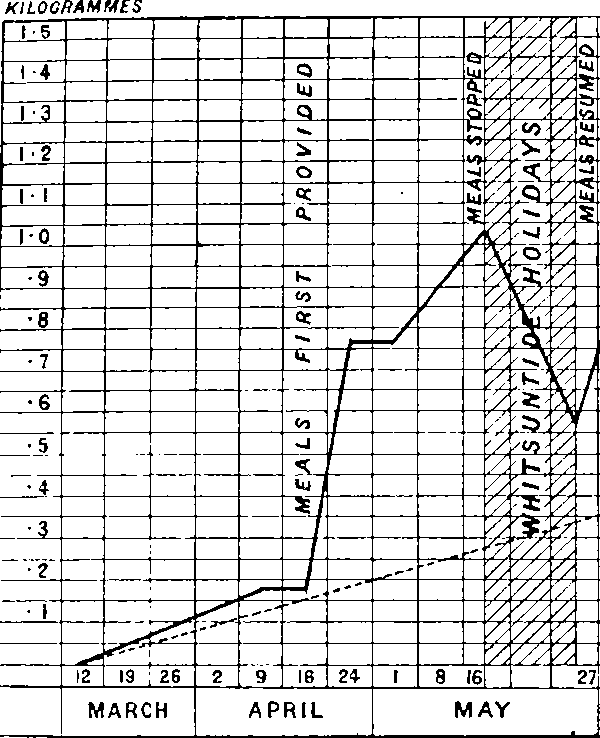 KILOGRAMMES
1·5
1·4
1·3
1·2
1·1
1·0
·9
·8
·7
·6
·5
·4
·3
·2
·1
MEALS FIRST PROVIDED
MEALS STOPPED
WHITSUNTIDE HOLIDAYS
MEALS RESUMED
12 19 26 2 9 16 24 1 8 16 27
MARCH APRIL MAY